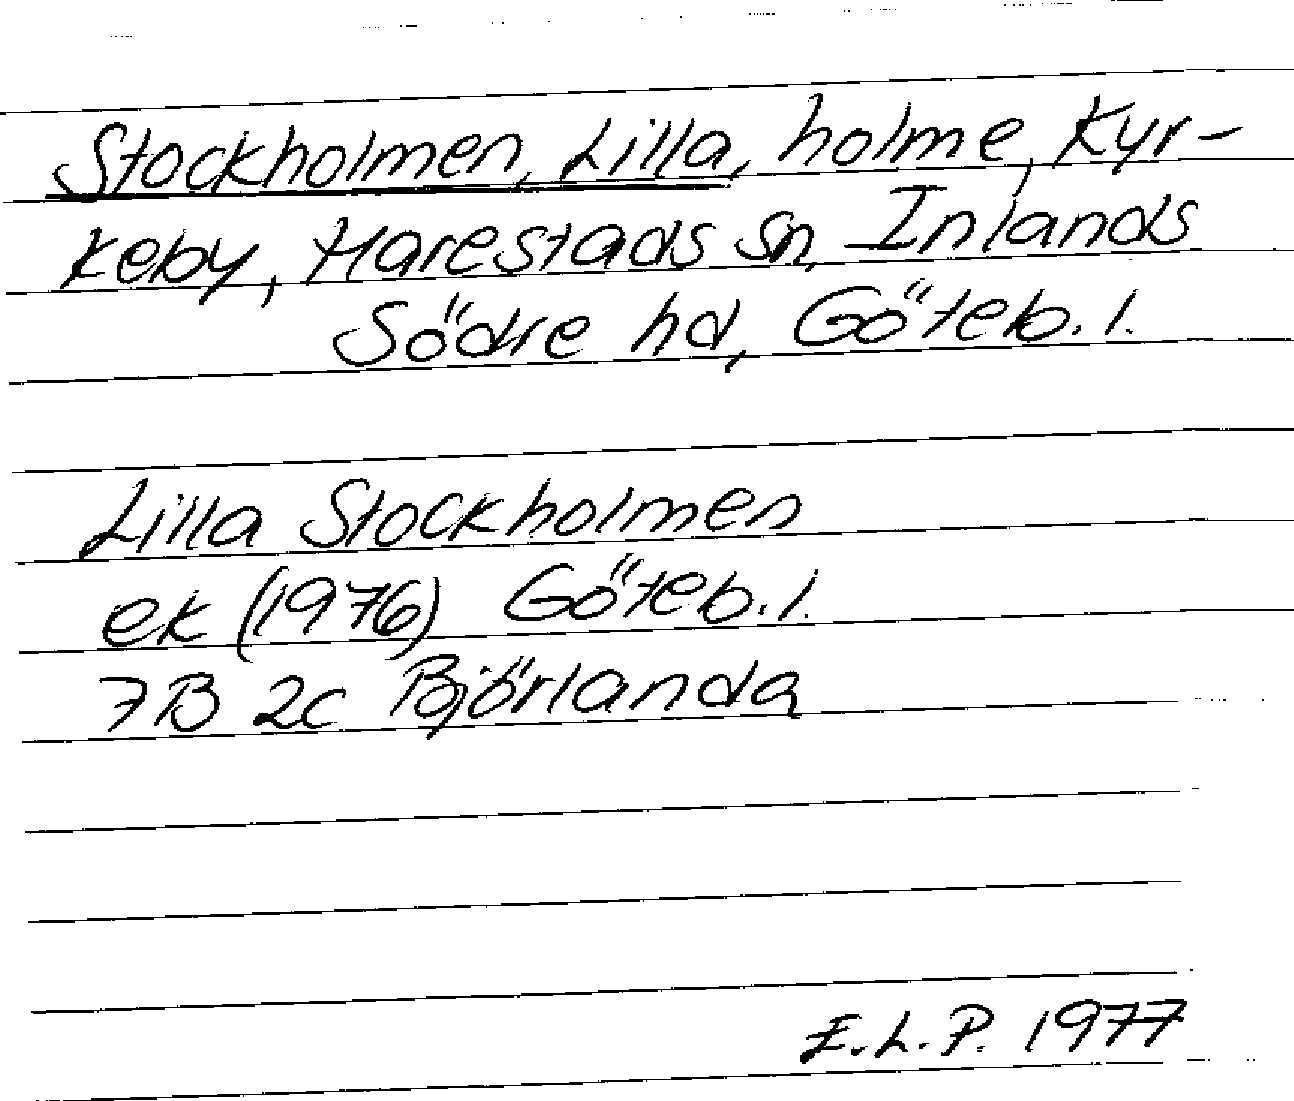 Stockholmen, Lilla, holme, Kyr-
keby, Harestads sn, Inlands
Södre hd, Göteb. l.
Lilla Stockholmen
ek (1976) Göteb. l.
7B 2c Björlanda
E.L.P. 1977